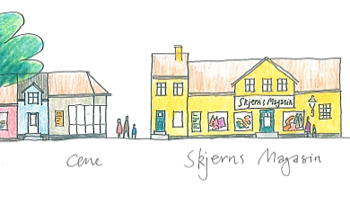 Skjerns Magasin
Cene Skjerns Magasin